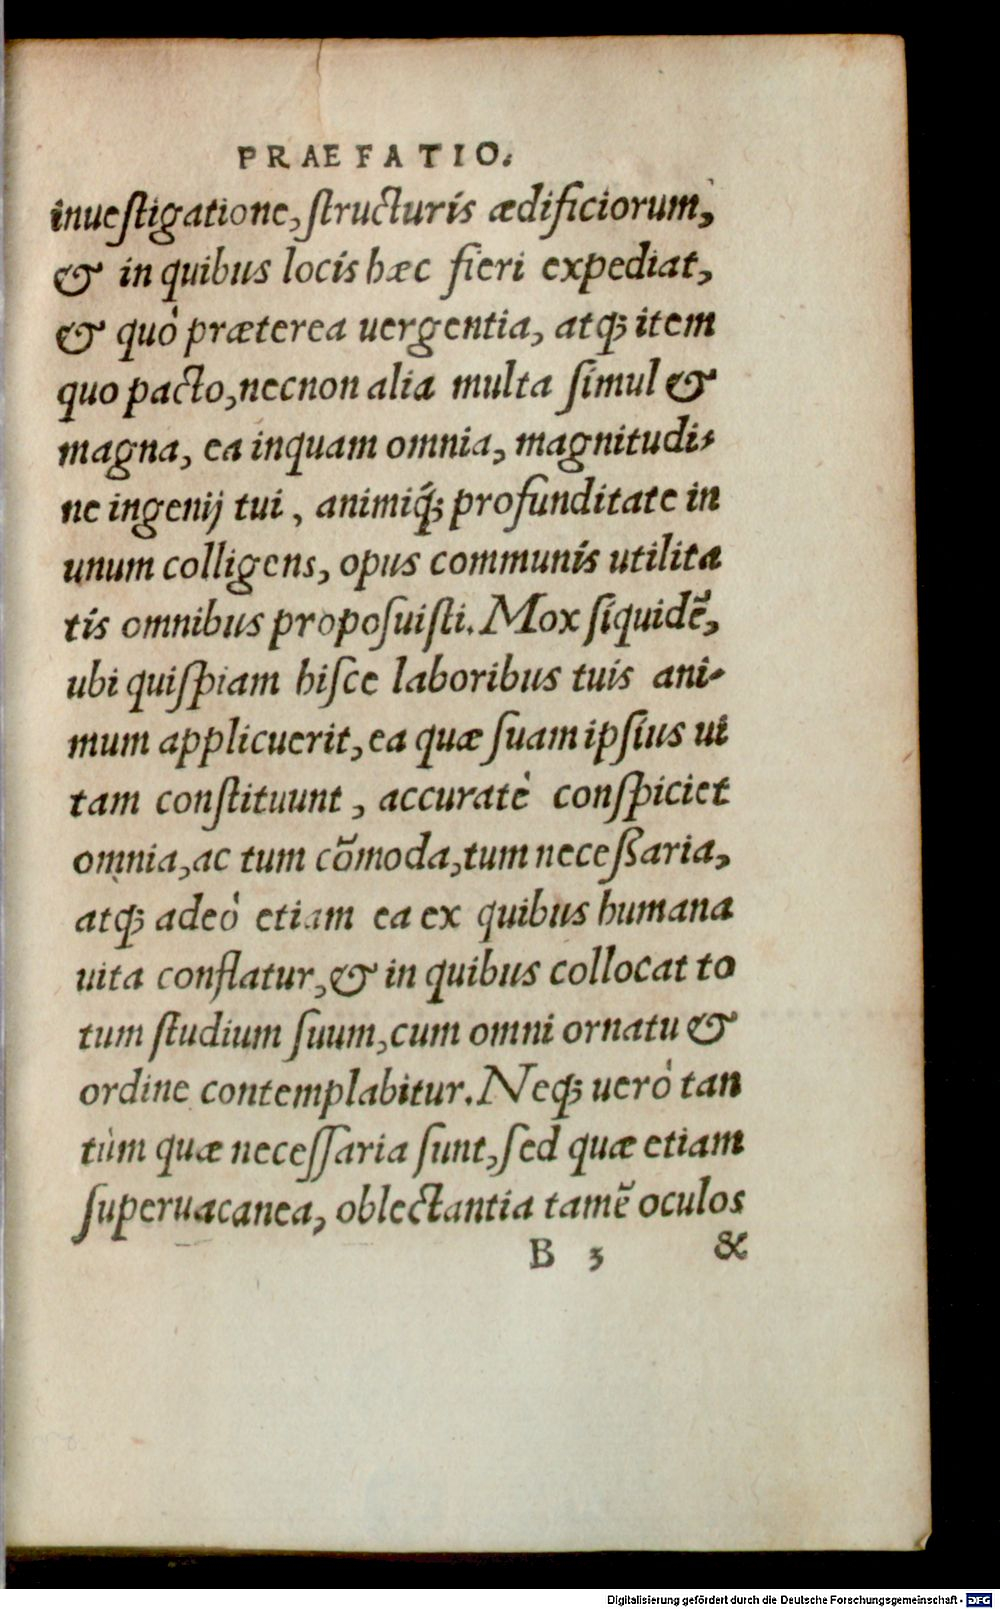 PRAEFATIO.
inueſtigatione, ſtructuris ædificiorum,
& in quibus locis hæc fieri expediat,
& quò præterea uergentia, atq; item
quo pacto, necnon alia multa ſimul &
magna, ea inquam omnia, magnitudi-
ne ingenij tui, animiq́; profunditate in
unum colligens, opus communis utilita
tis omnibus propoſuiſti. Mox ſiquidẽ,
ubi quiſpiam hiſce laboribus tuis ani-
mum applicuerit, ea quæ ſuam ipſius ui
tam conſtituunt, accuratè conſpiciet
omnia, ac tum cõmoda, tum neceßaria,
atq; adeò etiam ea ex quibus humana
uita conflatur, & in quibus collocat to
tum ſtudium ſuum, cum omni ornatu &
ordine contemplabitur. Neq; uerò tan
tùm quæ neceſſaria ſunt, ſed quæ etiam
ſuperuacanea, oblectantia tamẽ oculos
B 3 &
Digitalisierung gefördert durch die Deutsche Forschungsgemeinschaft - DFG